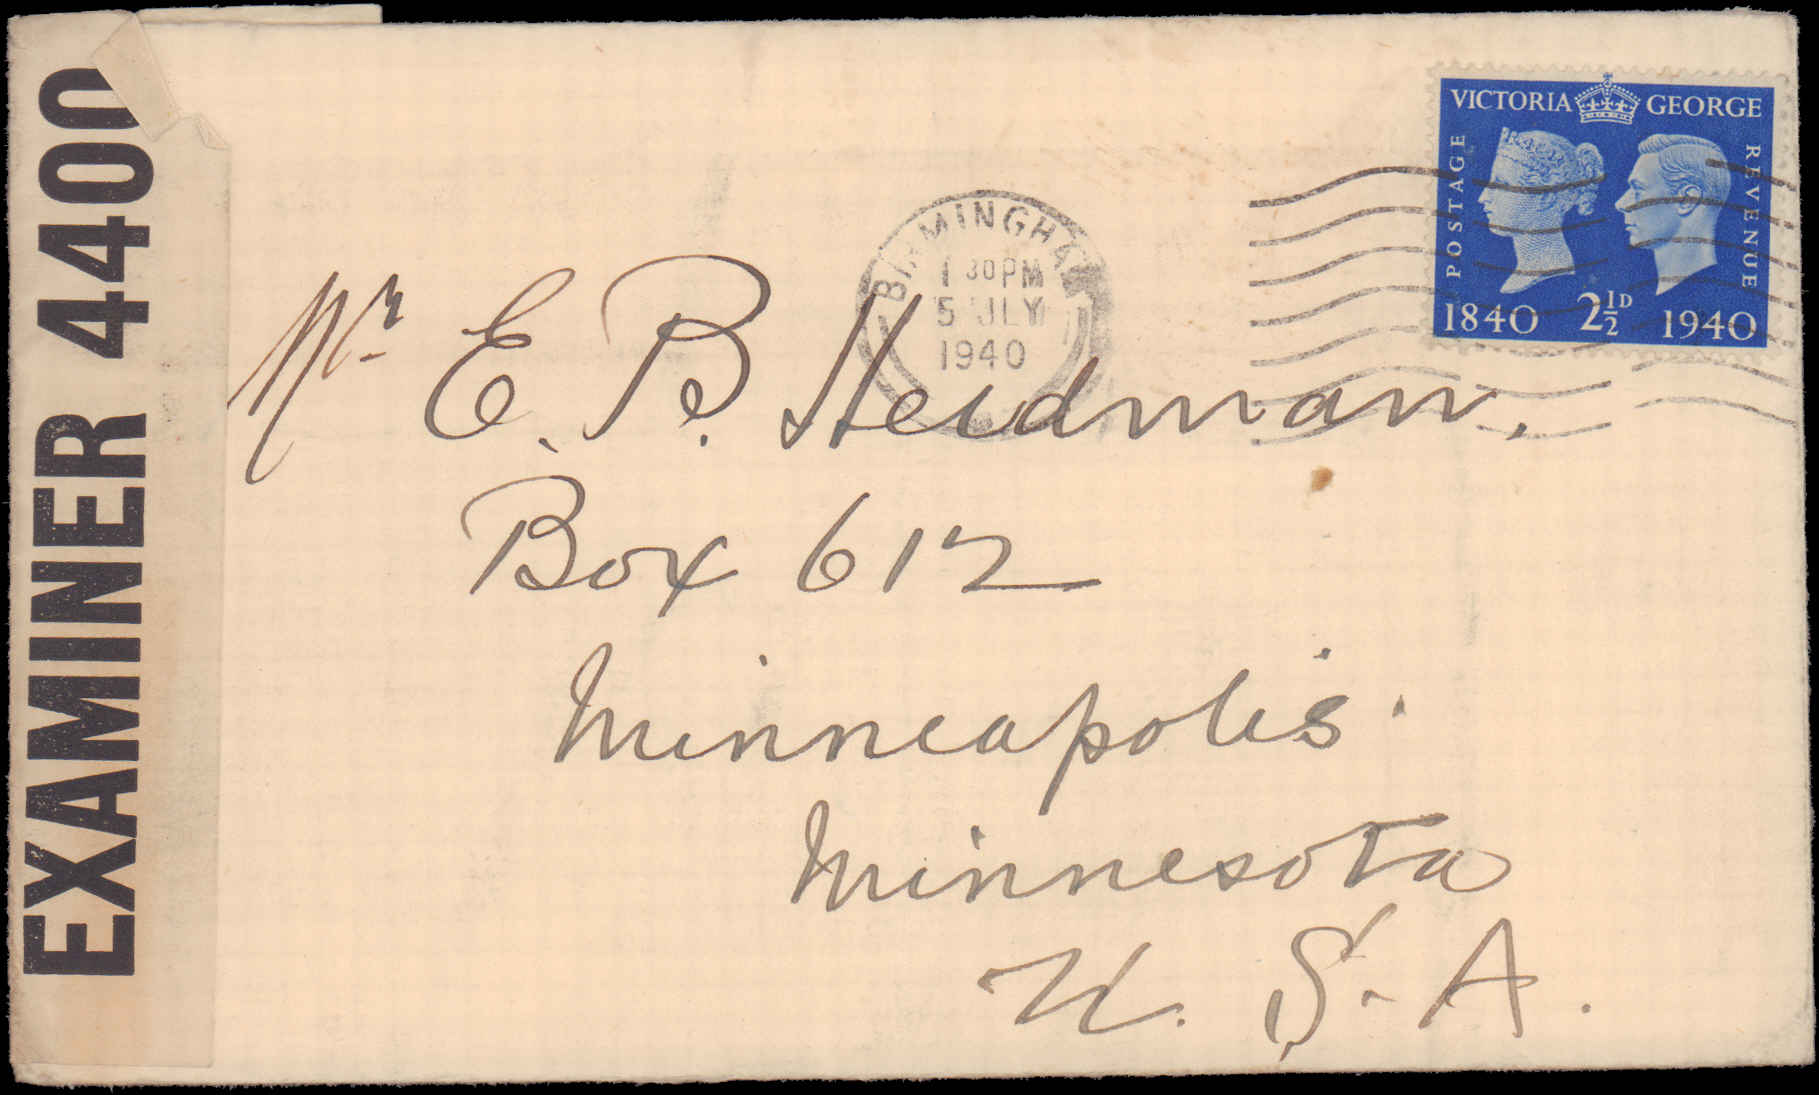 EXAMINER 4400
VICTORIA GEORGE
POSTAGE
REVENUE
1840 2½D 1940
BIRMINGHAM
1 30 PM
5 JLY
1940
Mr E. B. Heidman.
Box 612
Minneapolis.
Minnesota
U. S. A.